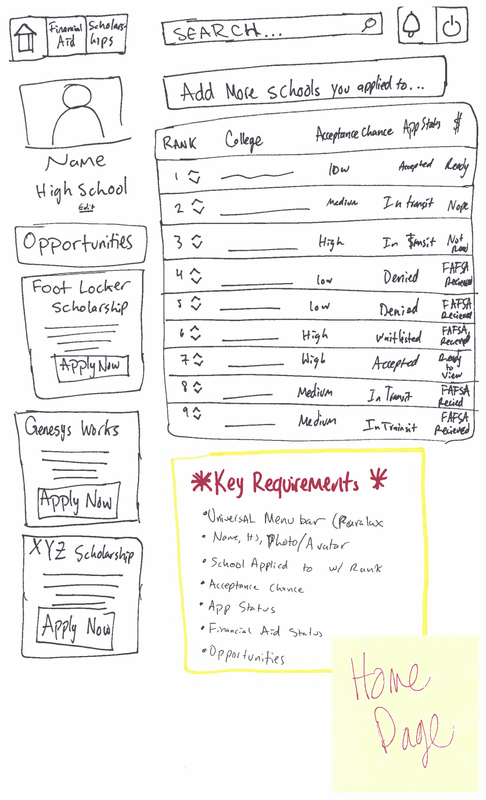 Financial Aid
Scholarships
SEARCH...
Add More schools you applied to...
Name
High School
Edit
Opportunities
Foot Locker
Scholarship
Apply Now
Genesys Works
Apply Now
XYZ Scholarship
Apply Now
RANK College Acceptance Chance App Status $
1 low Accepted Ready
2 Medium In transit Nope
3 High In Transit Not Read
4 low Denied FAFSA Recieved
5 low Denied FAFSA Recieved
6 High Waitlisted FAFSA Recieved
7 High Accepted Ready to View
8 Medium In Transit FAFSA
9 Medium In Trainsit FAFSA Recieved
*Key Requirements *
•Universal Menu bar (
• Name, HS, Photo/Avatar
•School Applied to w/ Rank
•Acceptance Chance
•App Status
•Financial Aid Status
•Opportunities
Home
Page